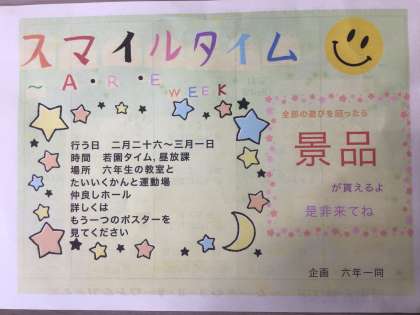 スマイルタイム
～A・R・E WEEK
行う日 二月二十六～三月一日
時間 若園タイム,昼放課
場所 六年生の教室と
たいいくかんと運動場
仲良しホール
詳しくは
もう一つのポスターを
見てください
全部の遊びを回ったら
景品
が貰えるよ
是非来てね
企画 六年一同